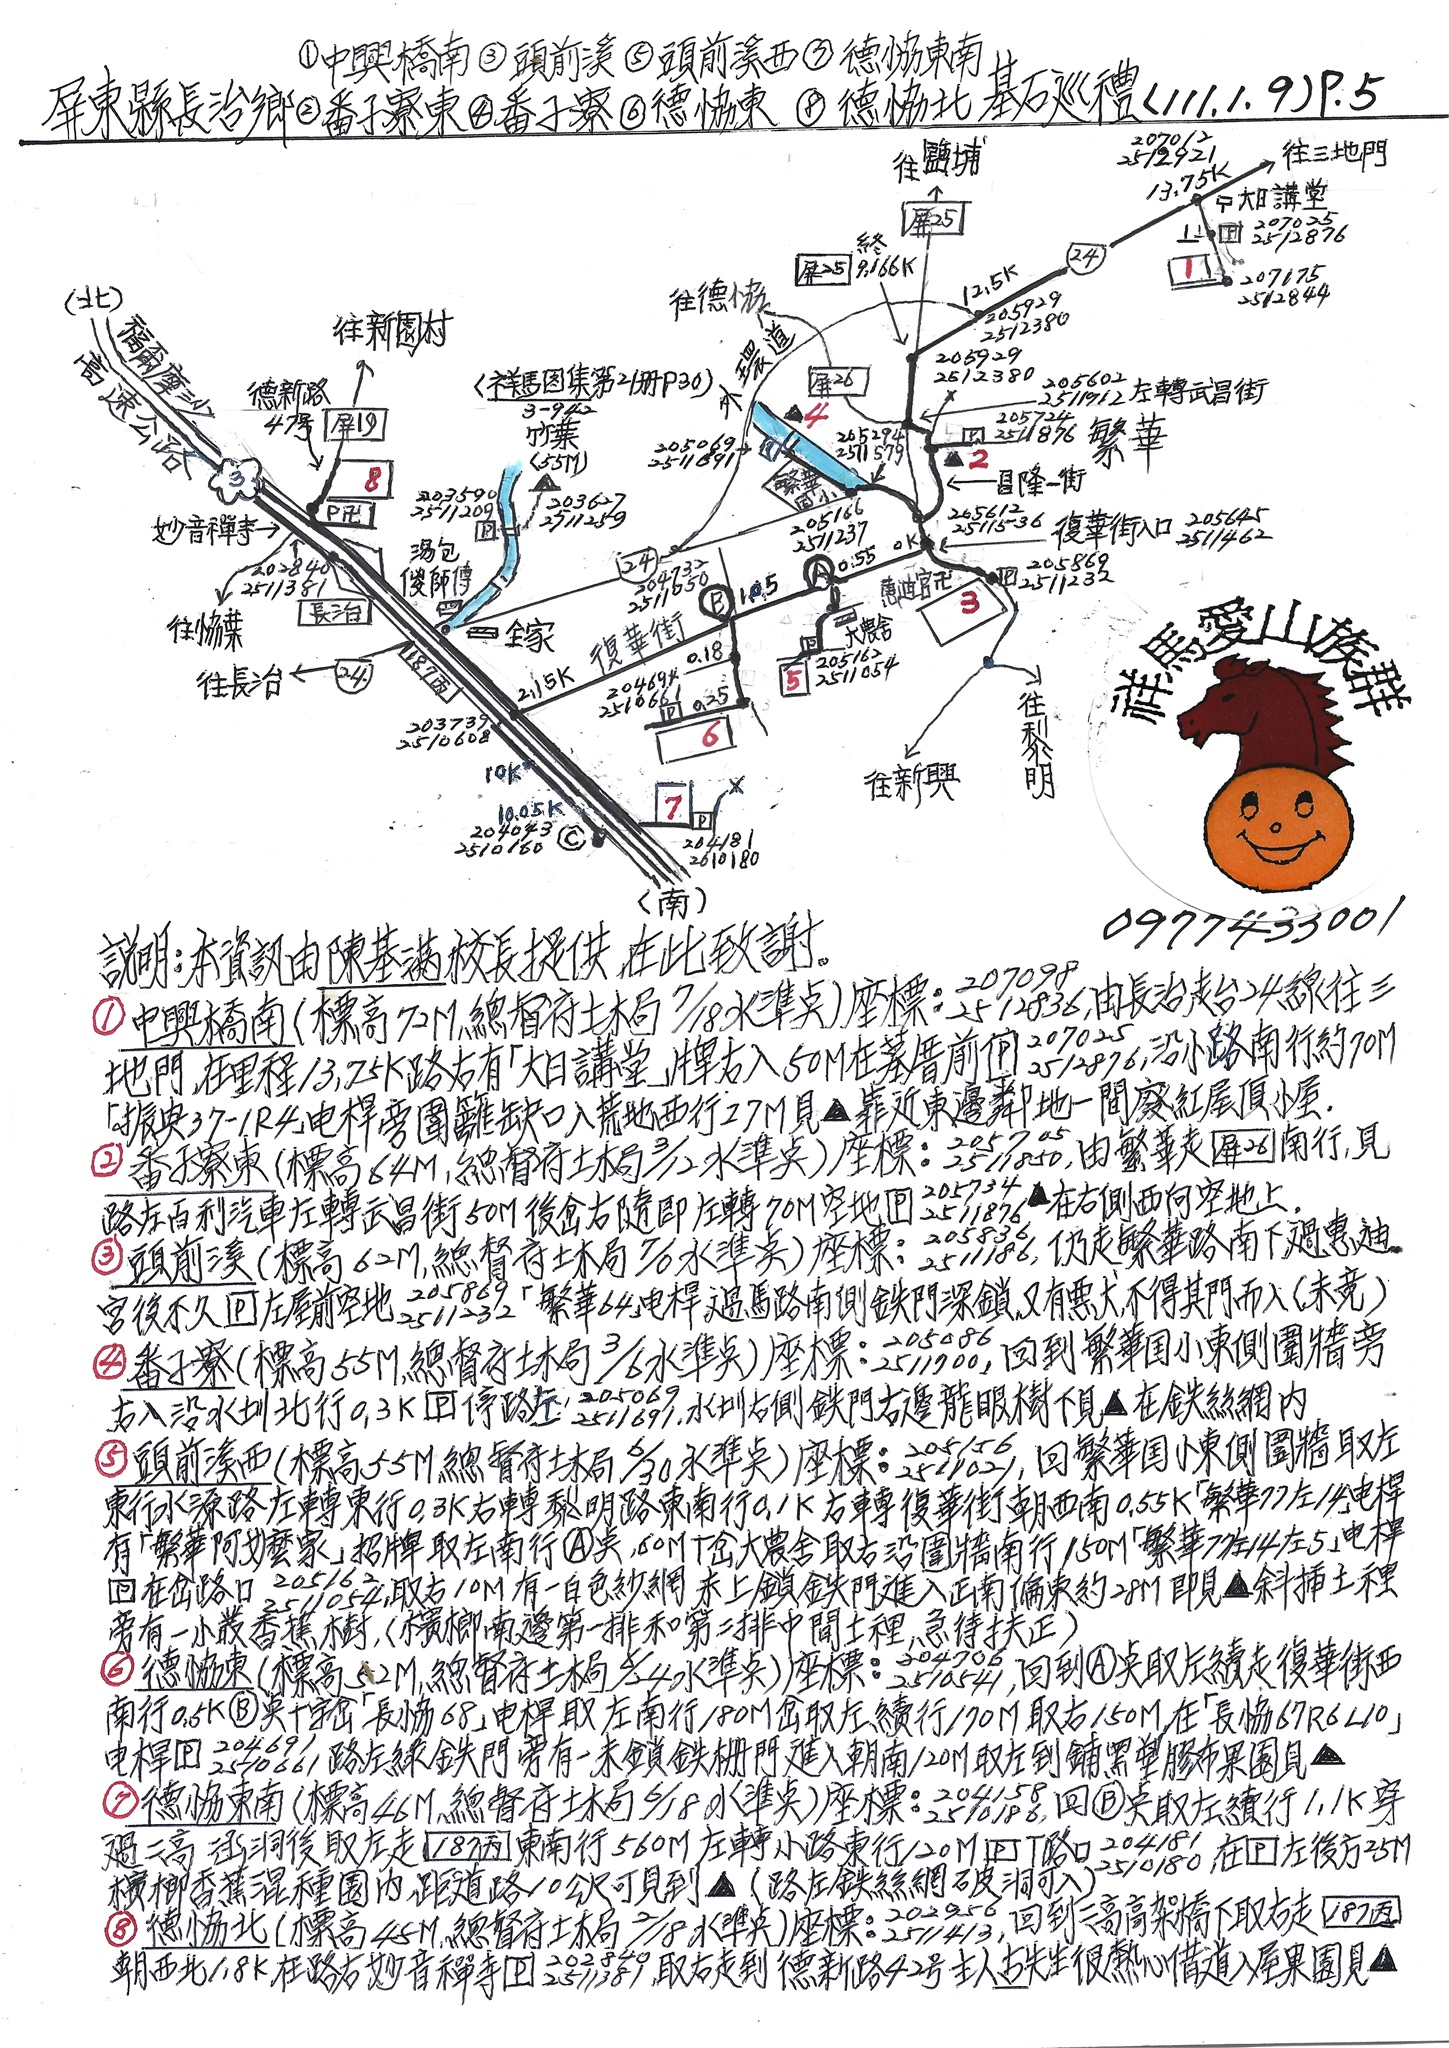 ①中興橋南③頭前溪⑤頭前溪西⑦德協東南
屏東縣長治鄉②番子寮東④番子寮⑥德協東⑧德協北基石巡禮(111.1.9)P.5
207012
2512921
往三地門
13.75K
卍大日講堂
P
207025
2512876
1
207175
2512844
往鹽埔
屏25
終
屏25 9.166K
24
12.5K
205929
2512380
往德協
外環道
屏26
205929
2512380
205602
2511912
左轉武昌街
P
205724
2511876
繁華
▲2
昌隆一街
(北)
福爾摩沙
高速公路
3
往新園村
德新路
47号
屏19
8
P卍
妙音禪寺
202840
2511381
往協葉
長治
往長治
24
187丙
(祥馬图集第21册P30)
3-942
竹葉
(55M)
203590
2511209
P
203627
2511259
湯包
傻師傅
全家
▲4
205069
2511691
205294
2511579
繁華
国小
205166
2511237
24
204732
2511650
B
1.05
A
0.55
0K
205612
2511536
復華街入口
205645
2511462
P
205869
2511232
惠迪宮卍
3
大農舍
P
205162
2511054
5
復華街
2.15K
0.18
204694
2510661
P
0.25
6
203739
2510608
10K
10.05K
204043
2510160
C
7
P
204181
2610180
(南)
往新興
往黎明
祥馬愛山族群
0977433001
說明:本資訊由陳基滿校長提供,在此致謝。
①中興橋南(標高72M,總督府土木局7/18水準点)座標:207098 2512836,由長治走台24線往三
地門,在里程13.75K路右有「大日講堂」牌右入50M在墓厝前P 207025 2512876,沿小路南行約70M
「振央37-1R4」电桿旁圍籬缺口入荒地西行27M見▲靠近東邊鄰地一間廢紅屋頂小屋.
②番子寮東(標高64M,總督府土木局3/12水準点)座標:205705 2511850,由繁華走屏26南行,見
路左百利汽車左轉武昌街50M後岔右隨即左轉70M空地P 205734 2511876▲在右側西向空地上.
③頭前溪(標高62M,總督府土木局7/6水準点)座標:205836 2511186,仍走繁華路南下過惠迪
宮後不久P左屋前空地205869 2511232「繁華64」电桿,過馬路南側鉄門深鎖,又有悪犬,不得其門而入(未竟)
④番子寮(標高55M,總督府土木局3/6水準点)座標:205086 2511700,回到繁華国小東側圍牆旁
右入沿水圳北行0.3K P停路左:205069 2511691.水圳右側鉄門右邊龍眼樹下見▲在鉄絲網內
⑤頭前溪西(標高55M,總督府土木局6/30水準点)座標:205156 2511021,回繁華国小東側圍牆取左
東行水源路左轉東行0.3K右轉黎明路東南行0.1K右轉復華街朝西南0.55K「繁華77左14」电桿
有「繁華阿嬤家」招牌取左南行Ⓐ点,60M T岔大農舍取右沿圍牆南行150M「繁華77左14左5」电桿
P在岔路口205162 2511054,取右10M有一白色紗網未上鎖鉄門進入正南偏東約28M即見▲斜挿土裡
旁有一小叢香蕉樹,(檳榔南邊第一排和第二排中間土裡,急待扶正)
⑥德協東(標高52M,總督府土木局6/24水準点)座標:204706 2510541,回到Ⓐ点取左續走復華街西
南行0.5K Ⓑ点十字岔「長協68」电桿取左南行180M岔取左續行170M取右150M,在「長協67R6L10」
电桿P 204691 2510661路左綠鉄門旁有一未鎖鉄柵門進入朝南120M取左到鋪黑塑膠布果園見▲
⑦德協東南(標高46M,總督府土木局6/18水準点)座標:204158 2510186,回Ⓑ点取左續行1.1K穿
過二高涵洞後取左走187丙東南行560M左轉小路東行120M P T路口204181 2510180,在P左後方25M
檳榔香蕉混種園內,距道路10公尺可見到▲(路左鉄絲網破洞可入)
⑧德協北(標高45M,總督府土木局2/18水準点)座標:202956 2511413,回到二高高架橋下取右走187丙
朝西北1.8K,在路右妙音禪寺P 202840 2511381,取右走到德新路42号主人古先生很熱心借道入屋果園見▲